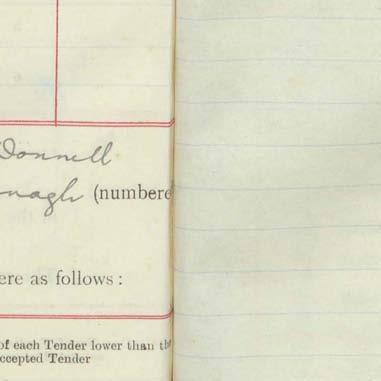 Donnell
nagh (numbere
ere as follows :
of each Tender lower than th
ccepted Tender